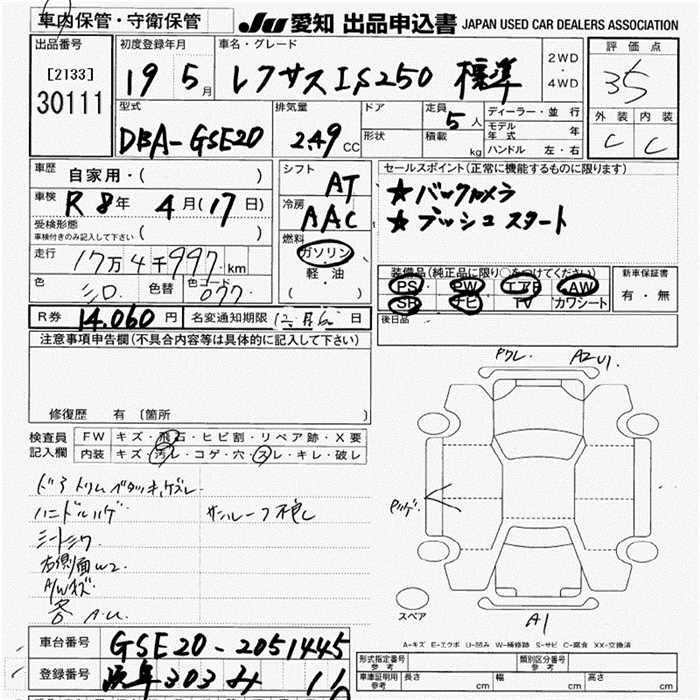 車内保管・守衛保管
JU 愛知 出品申込書 JAPAN USED CAR DEALERS ASSOCIATION
出品番号
[2133]
30111
初度登録年月
19 5月
車名・グレード
レクサスIS250 標準
2WD
・
4WD
評価点
35
外装 内装
C C
型式
DBA-GSE20
排気量
2.49 CC
ドア
形状
定員
5人
積載
kg
ディーラー・並行
モデル年式 年
ハンドル 左・右
車歴
自家用・( )
車検
R8年 4月(17日)
受検形態
車検付きのみ記入して下さい ( )
走行
17万4千997km
色
シロ
色替
色コード
077
シフト
AT
冷房
AAC
燃料
ガソリン
軽・油
( )
セールスポイント(正常に機能するものに限ります)
★バックカメラ
★プッシュスタート
装備品(純正品に限り○をつけてください)
PS PW エアB AW
SR ナビ TV カワシート
新車保証書
有・無
後日品
R券 14.060円
名変通知期限 12月6日
注意事項申告欄(不具合内容等は具体的に記入して下さい)
修復歴 有 〔箇所
検査員
記入欄
FW キズ・飛石・ヒビ割・リペア跡・X要
内装 キズ・汚レ・コゲ・穴・スレ・キレ・破レ
ハンドルハゲ
右側面W2
A/Wキズ
各A.U.
A2U1
A1
スペア
A-キズ E-エクボ U-凹み W-補修跡 S-サビ C-腐食 XX-交換済
車台番号
GSE20-2051445
登録番号
303 み 16
形式指定番号
参考
類別区分番号
参考
車庫証明用
参考
長さ cm
幅 cm
高さ cm